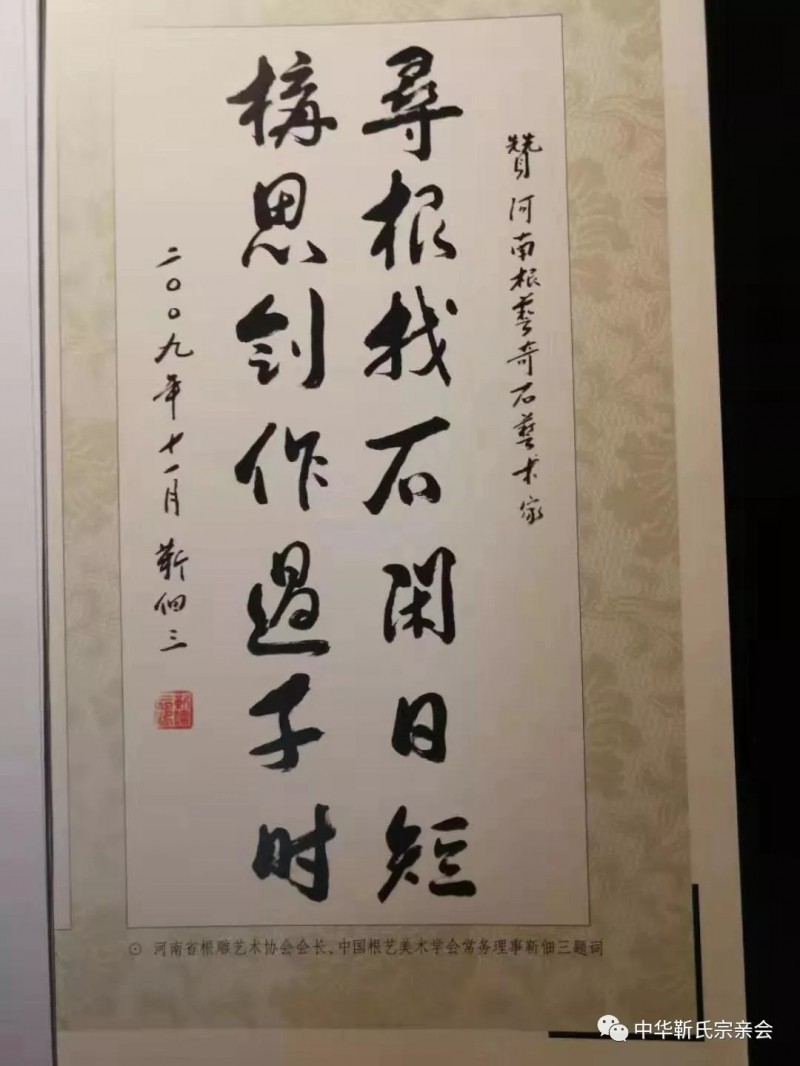 赞河南根藝奇石藝术家
尋根找石闲日短
構思創作過子时
二〇〇九年十一月 靳佃三
⊙ 河南省根雕艺术协会会长、中国根艺美术学会常务理事靳佃三题词
中华靳氏宗亲会